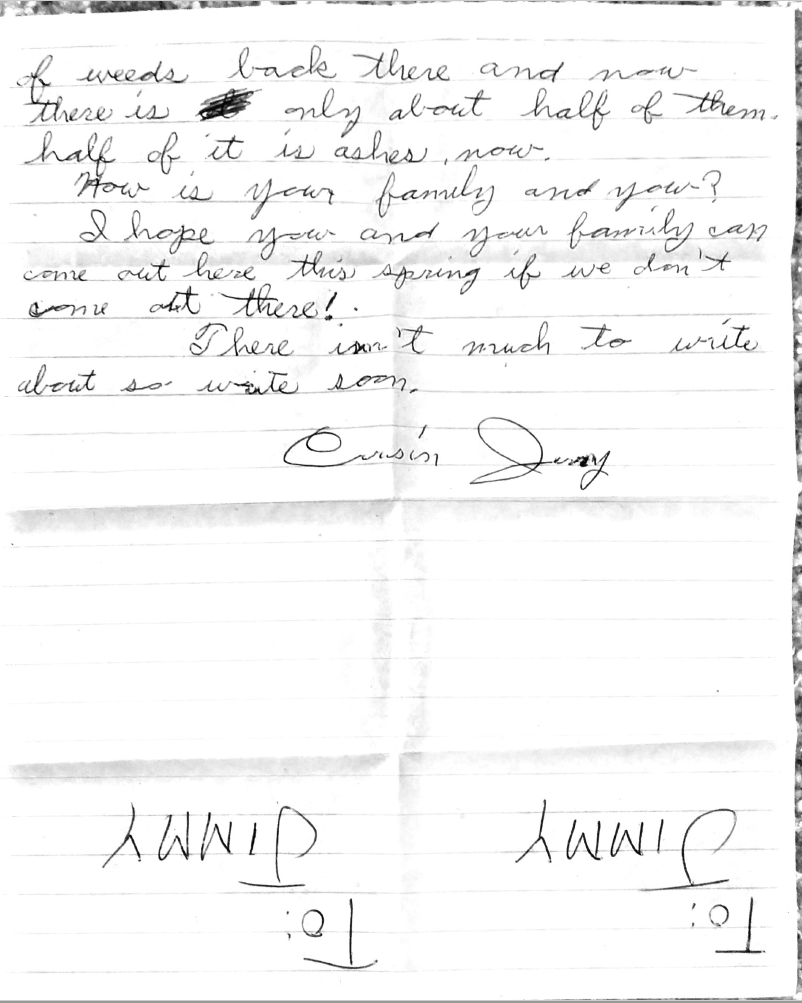 of weeds back there and now
there is only about half of them.
half of it is ashes, now.
How is your family and you?
I hope you and your family can
come out here this spring if we don't
come out there!
There isn't much to write
about so write soon.
Cousin
To: JIMMY
To: JIMMY